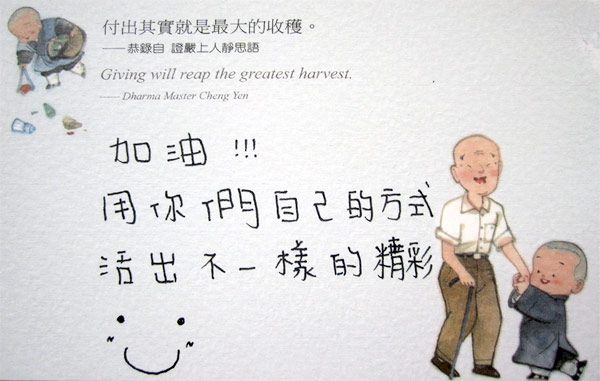 付出其實就是最大的收穫。
——恭錄自 證嚴上人靜思語
Giving will reap the greatest harvest.
—— Dharma Master Cheng Yen
加油!!!
用你們自己的方式
活出不一樣的精彩